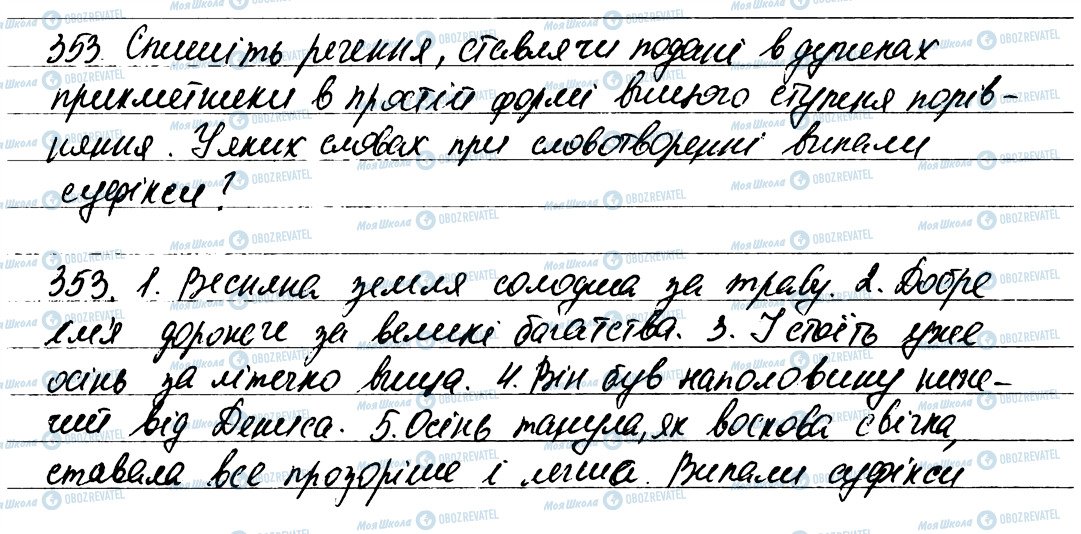 353. Спишіть речення, ставлячи подані в дужках
прикметники в простій формі вищого ступеня порів-
няння. У яких словах при словотворенні випали
суфікси?
353. 1. Весняна земля солодша за траву. 2. Добре
ім'я дорожче за великі багатства. 3. І стоїть уже
осінь за літечко вища. 4. Він був наполовину ниж-
чий від Дениса. 5. Осінь танула, як воскова свічка,
ставала все прозоріше і легша. Випали суфікси